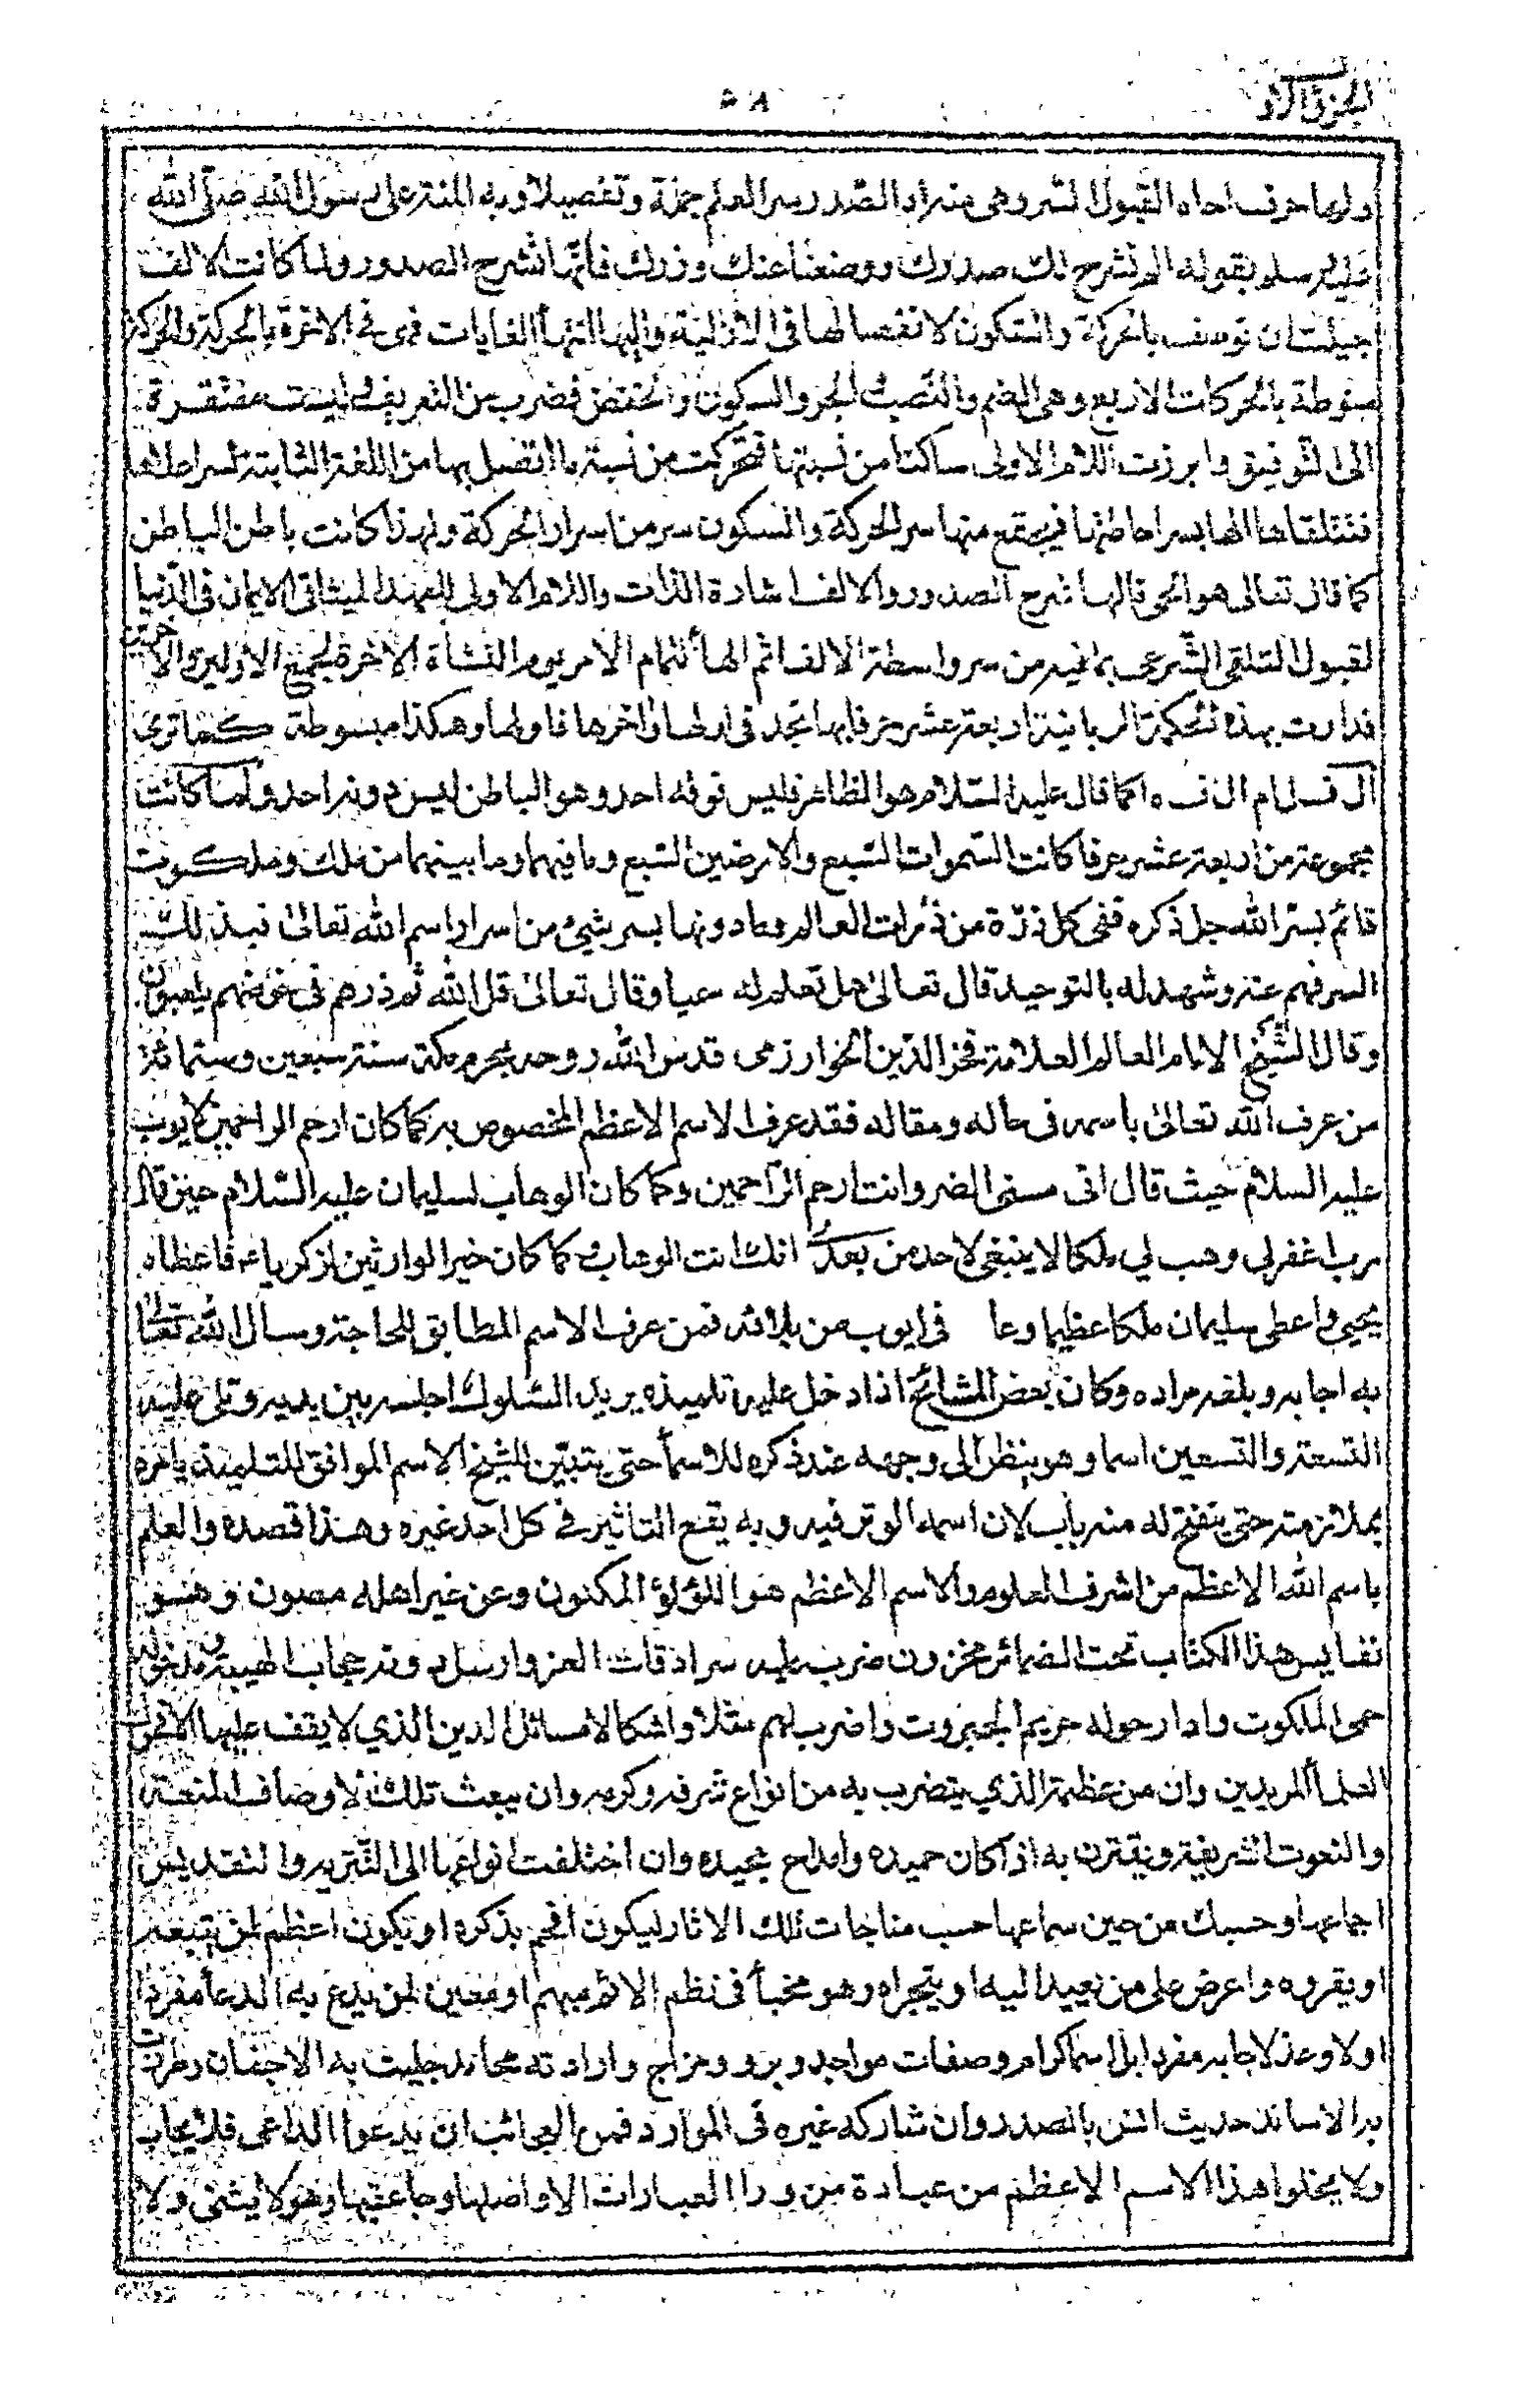 الجزؤ الاو
٥٨
ولها حرف احاه القبول السر وهى منراد الصدر سر العلم جملة وتفصيلا وبه المنة على رسول الله صلى الله
عليه سلم بقوله الم نشرح لك صدرك ووضعنا عنك وزرك فانها تشرح الصدور ولما كانت الالف
ان توصف بالحركة والسكون لانفصالها فى الازلية واليها انتهأ الغايات فهى فى الاخرة بالحركة والحركة
منوطة بالحركات الاربع وهى الضم والنصب الجر والسكون والخفض فضرب من التعريف ليست مفتقرة
الى التوفيق وابرزت اللام الاولى ساكنا من نسبتها فتحركت من نسبة ما اتصل بها من اللغة الثابتة لسر احاطتها
فتتلقاها الها بسر احاطتها فيجتمع منها سر الحركة والسكون سر من اسرار الحركة ولهذا كانت باطن الباطن
كما قال تعالى هو الحى قالها شرح الصدور والالف اشارة الذات واللام الاولى للعهد الميثاقى الايمان فى الدنيا
لقبول التلقى الشرعى بما فيه من سر واسطة الالف ثم الهأ لتمام الامر يوم النشاة الاخرة لجمع الاولين والا خرين
فدارت بهذه الحكمة الربانية اربعة عشر حرفا بها تجد فى اولها واخرها فاولها وهكذا مبسوطة كما ترى
ال ف ل ام ال ف ه ا كما قال عليه السلام هو الظاهر فليس فوقه احد وهو الباطن ليس دونه احد ولما كانت
مجموعة من اربعة عشر حرفا كانت السموات السبع والارضين السبع وما فيهما وما بينهما من ملك وملكوت
قائم بسر الله جل ذكره ففى كل ذرة من ذرات العالم وما دونها بسر شيئ من اسرار اسم الله تعالى فبذلك
السر فهم عنه وشهد له بالتوحيد قال تعالى هل تعلم له سميا وقال تعالى قل الله ثم ذرهم فى خوضهم يلعبون
وقال الشيخ الامام العالم العلامة فخر الدين الخوارزمى قدس الله روحه بحرم مكة سنة سبعين وستمائة
من عرف الله تعالى باسمه فى حاله ومقاله فقد عرف الاسم الاعظم المخصوص به كما كان ارحم الراحمين لايوب
عليه السلام حيث قال انى مسنى الضر وانت ارحم الراحمين وكما كان الوهاب لسليمان عليه السلام حين قال
رب اغفرلى وهب لي ملكا لا ينبغى لاحد من بعدى انك انت الوهاب وكما كان خير الوارثين لزكرياء فاعطاه
يحيى واعطى سليمان ملكا عظيما وعا فى ايوب من بلائه فمن عرف الاسم المطابق للحاجة وسأل الله تعالى
به اجابه وبلغه مراده وكان بعض المشائخ اذا دخل عليه تلميذه يريد السلوك اجلسه بين يديه وتلى عليه
التسعة والتسعين اسما وهو ينظر الى وجهه عند ذكره للاسمأ حتى يتبين للشيخ الاسم الموافق للتلميذ يامره
بملازمته حتى يتفتح له منه باب لان اسمه الوتر فيه وبه يقع التاثير فى كل احد غيره وهذا قصده والعلم
باسم الله الاعظم من اشرف العلوم والاسم الاعظم هو اللؤلؤ المكنون وعن غير اهله مصون وهو
نفايس هذا الكتاب تحت الضمائر مخزون ضرب عليه سرادقات العز وارسل دونه حجاب الهيبة
حمى الملكوت وادار حوله حريم الجبروت واضرب لهم مثلا واشكالا مسائل الدين الذي لا يقف عليها الا
العلمأ المريدين وان من عظيمة الذي يتضرب به من انواع شرفه وكرمه وان يبعث تلك الاوصاف المنعة
والنعوت الشريفة ويقترن به اذ كان حميده وامداح مجيده وان اختلفت انواعها الى التنزيه والتقديس
اجماعها وحسبك من حين سماعها حسب مناجات تلك الاثار ليكون افخم بذكره او تكون اعظم لمن يتبعه
او يقروه واعرض على من يعيد اليه او يتجراه وهو مخبأ فى نظم الائم مبهم او معين لمن يدع به الدعأ مفردا
اولا وعد لاجابه مفردا بل اسما كرام وصفات مواجد وبرو ومزاج وارادته مجاز خليت به الاجفان
بدا الاساند حديث انس بالصدد وان شاركه غيره فى الموارد فمن العجائب ان يدعوا الداعى فلا يجاب
ولا يخلوا هذا الاسم الاعظم من عبادة من ورا العبارات الا واصلها وجاعتها وهو لا يثنى ولا